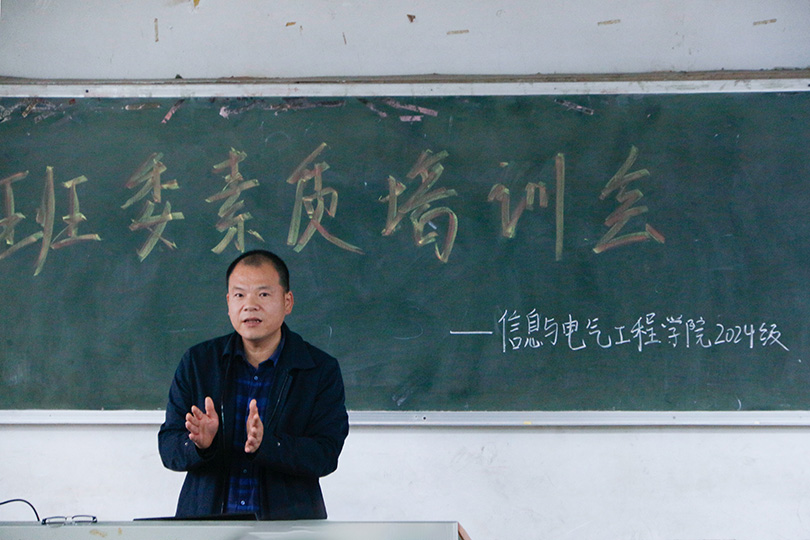 班委素质培训会
—信息与电气工程学院2024级